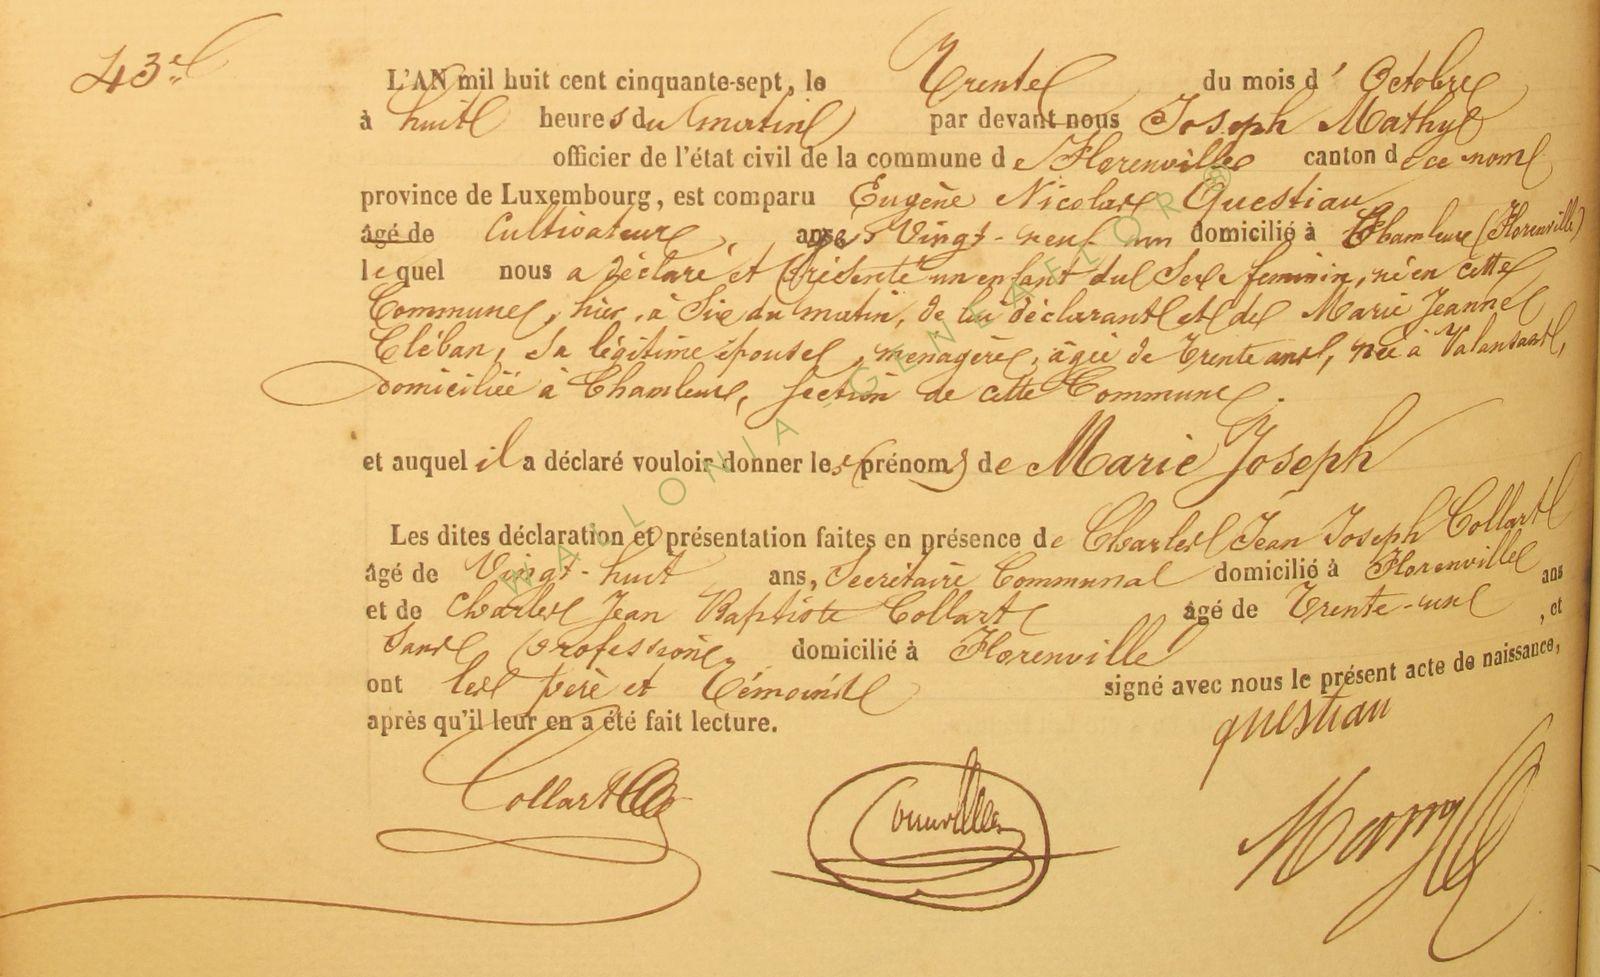 43e
L'AN mil huit cent cinquante-sept, le Trente du mois d' Octobre
à huit heures du matin par devant nous Joseph Mathys
officier de l'état civil de la commune de Florenville canton de ce nom
province de Luxembourg, est comparu Eugène Nicolas Questiau
âgé de Cultivateur, ans Vingt-neuf ans domicilié à Chameleux (Florenville)
lequel nous a déclaré et présenté un enfant du Sexe feminin, né en cette
Commune, hier, à Six du matin, de lui déclarant et de Marie Jeanne
Cléban, sa légitime épouse, menagère, âgée de Trente ans, née à Valansart,
domiciliée à Chameleux, section de cette Commune.
et auquel il a déclaré vouloir donner les prénoms de Marie Joseph
Les dites déclaration et présentation faites en présence de Charles Jean Joseph Collart
âgé de Vingt-huit ans, Secrétaire Communal domicilié à Florenville
et de Charles Jean Baptiste Collart âgé de Trente-un ans
Sans profession domicilié à Florenville , et
ont les père et témoins signé avec nous le présent acte de naissance,
après qu'il leur en a été fait lecture.
questiau
Collart
WALLONIA-GENEALOR®